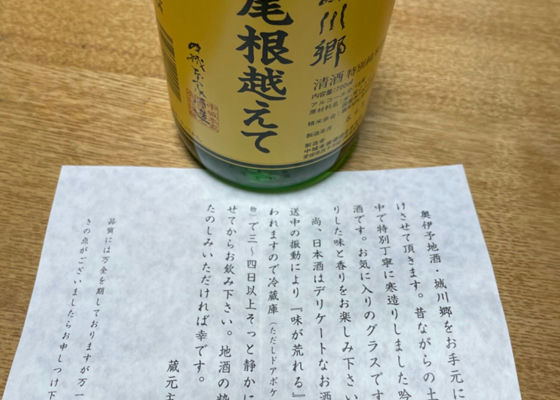 城川郷
尾根越えて
清酒 特別純
内容量700ml
アルコール分
原材料名
精米歩合
製造年月
製造者
奥伊予地酒・城川郷をお手元に
けさせて頂きます。昔ながらの土
中で特別丁寧に寒造りしました吟
酒です。お気に入りのグラスです
りした味と香りをお楽しみ下さい
尚、日本酒はデリケートなお酒
送中の振動により『味が荒れる』
われますので冷蔵庫（ただしドアポケ
物）で三～四日以上そっと静かに
せてからお飲み下さい。地酒の粋
たのしみいただければ幸です。
蔵元主
品質には万全を期しておりますが万一
きの点がございましたらお申しつけ下